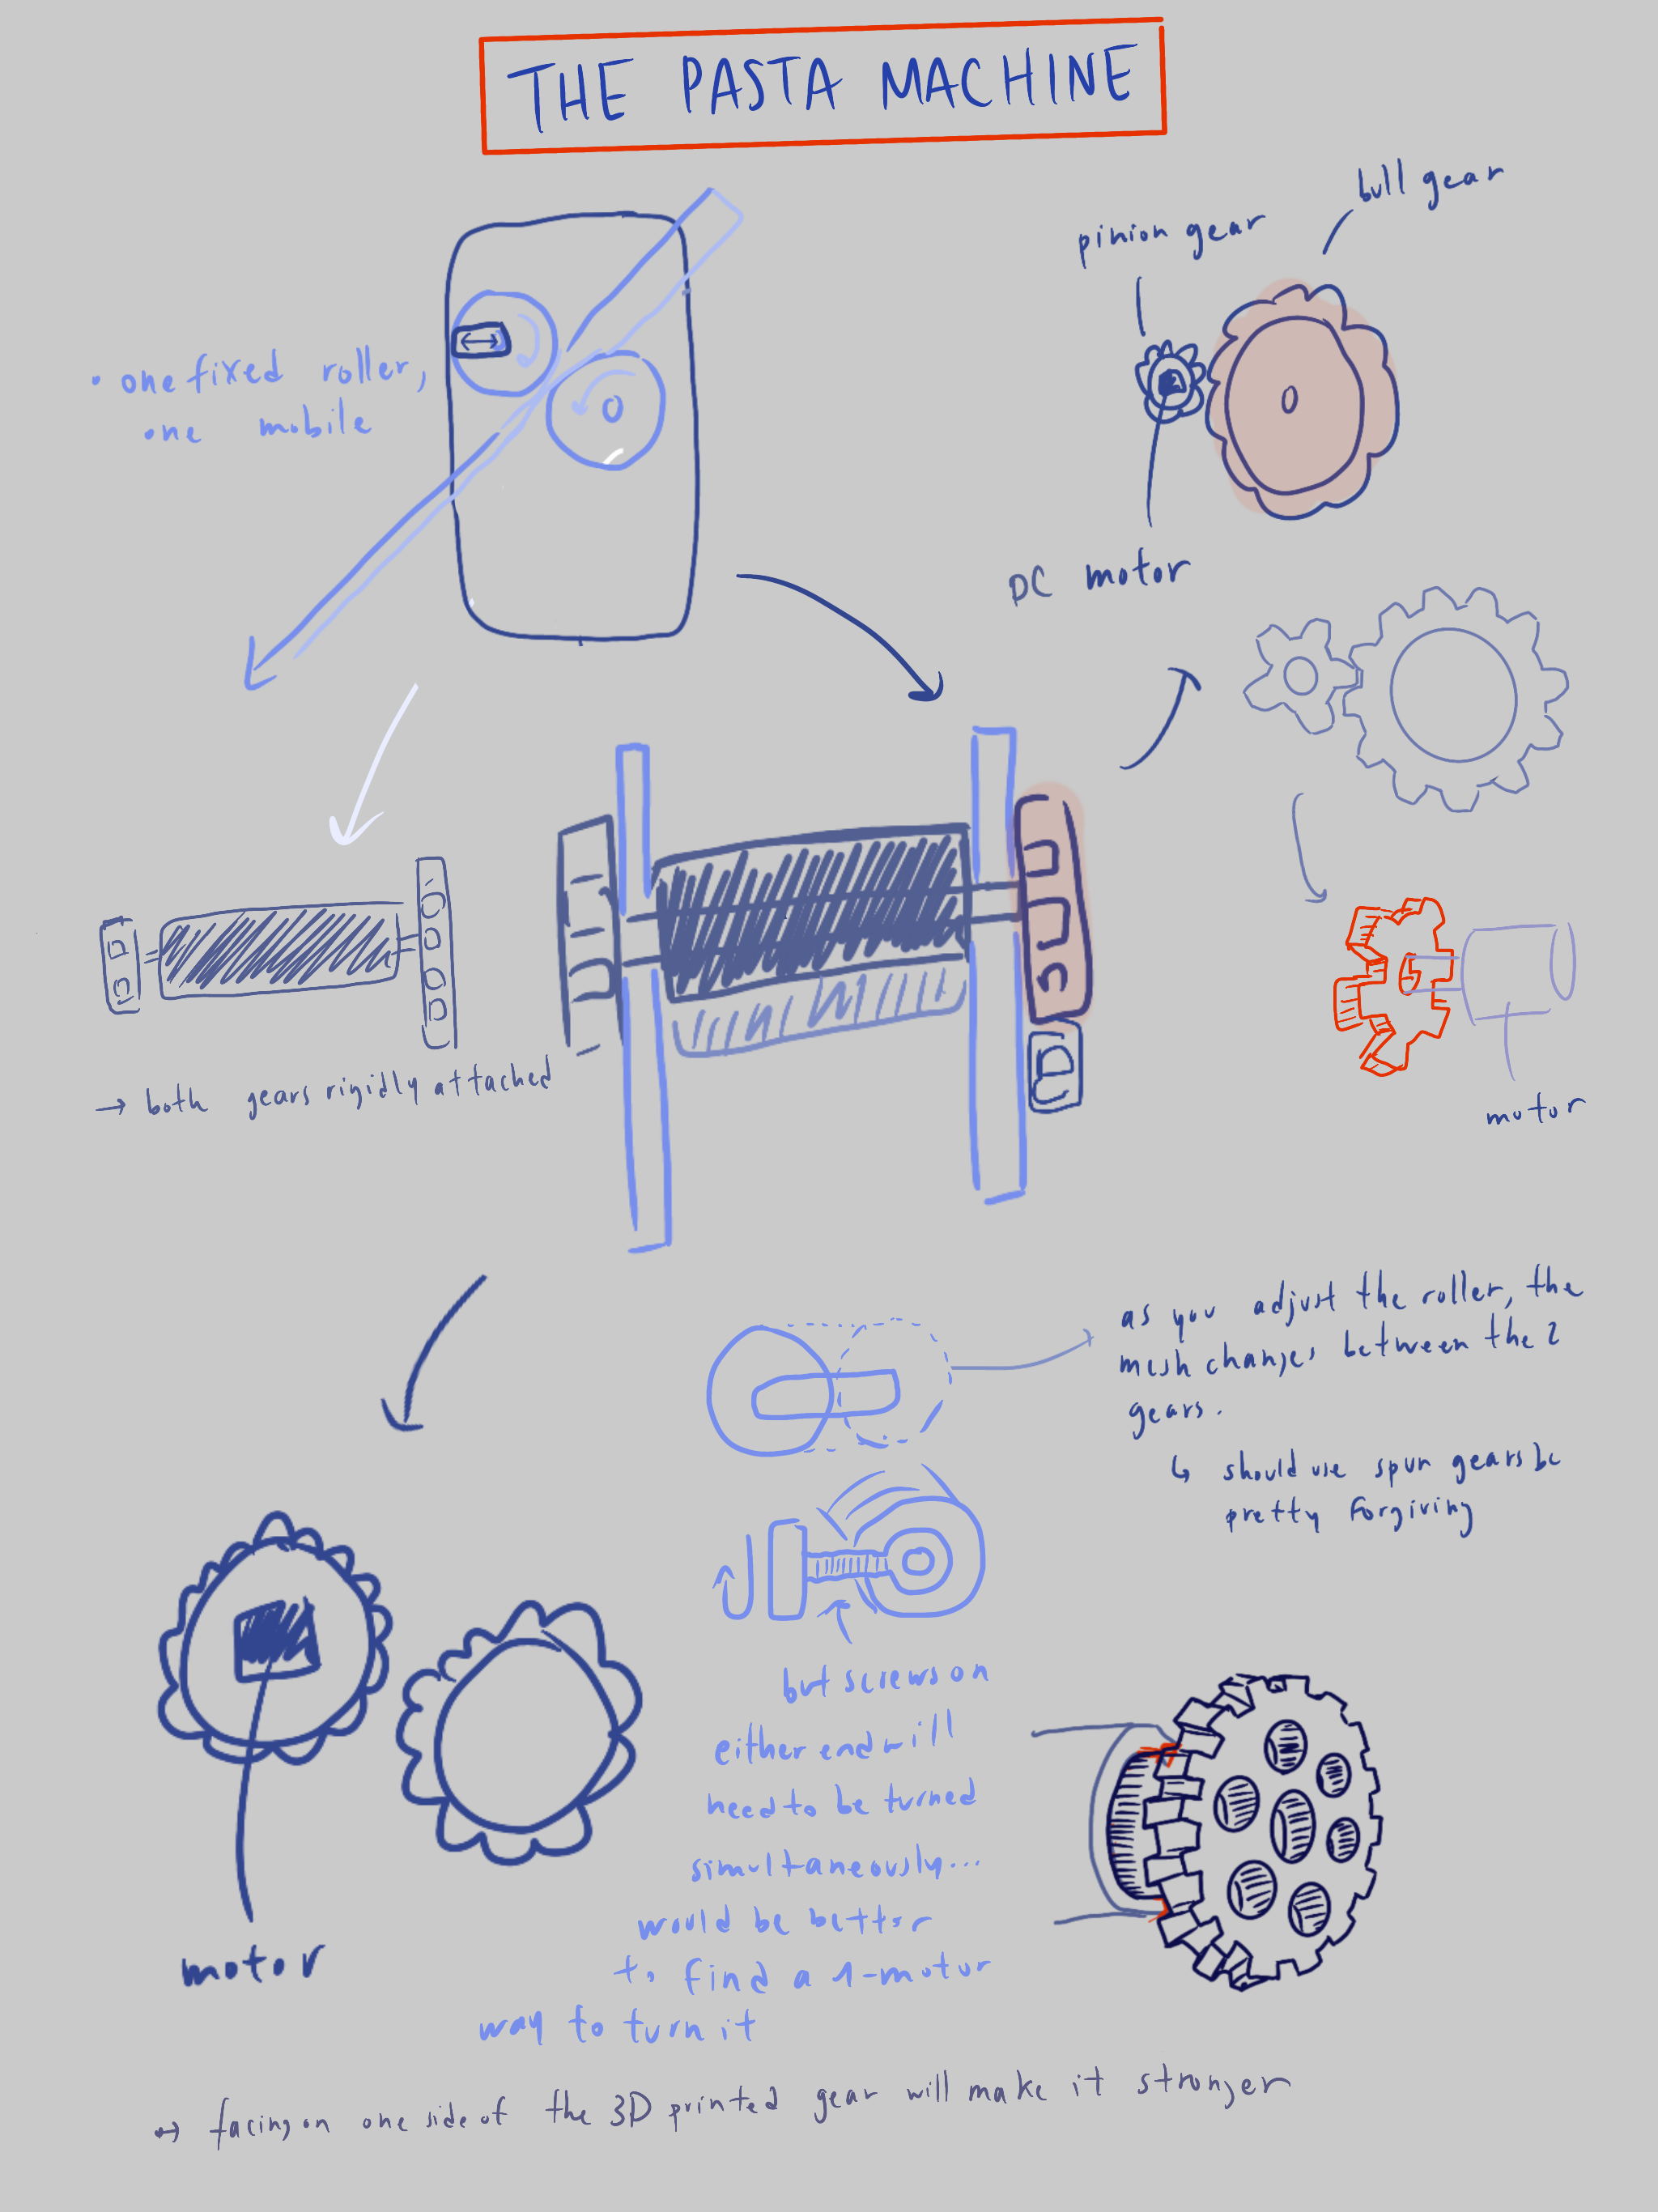 THE PASTA MACHINE
bull gear
pinion gear
• one fixed roller,
one mobile
DC motor
motor
→ both gears rigidly attached
as you adjust the roller, the
mesh changes between the 2
gears.
↳ should use spur gears bc
pretty forgiving
but screws on
either end will
need to be turned
simultaneously...
would be better
to find a 1-motor
way to turn it
motor
→ facing on one side of the 3D printed gear will make it stronger